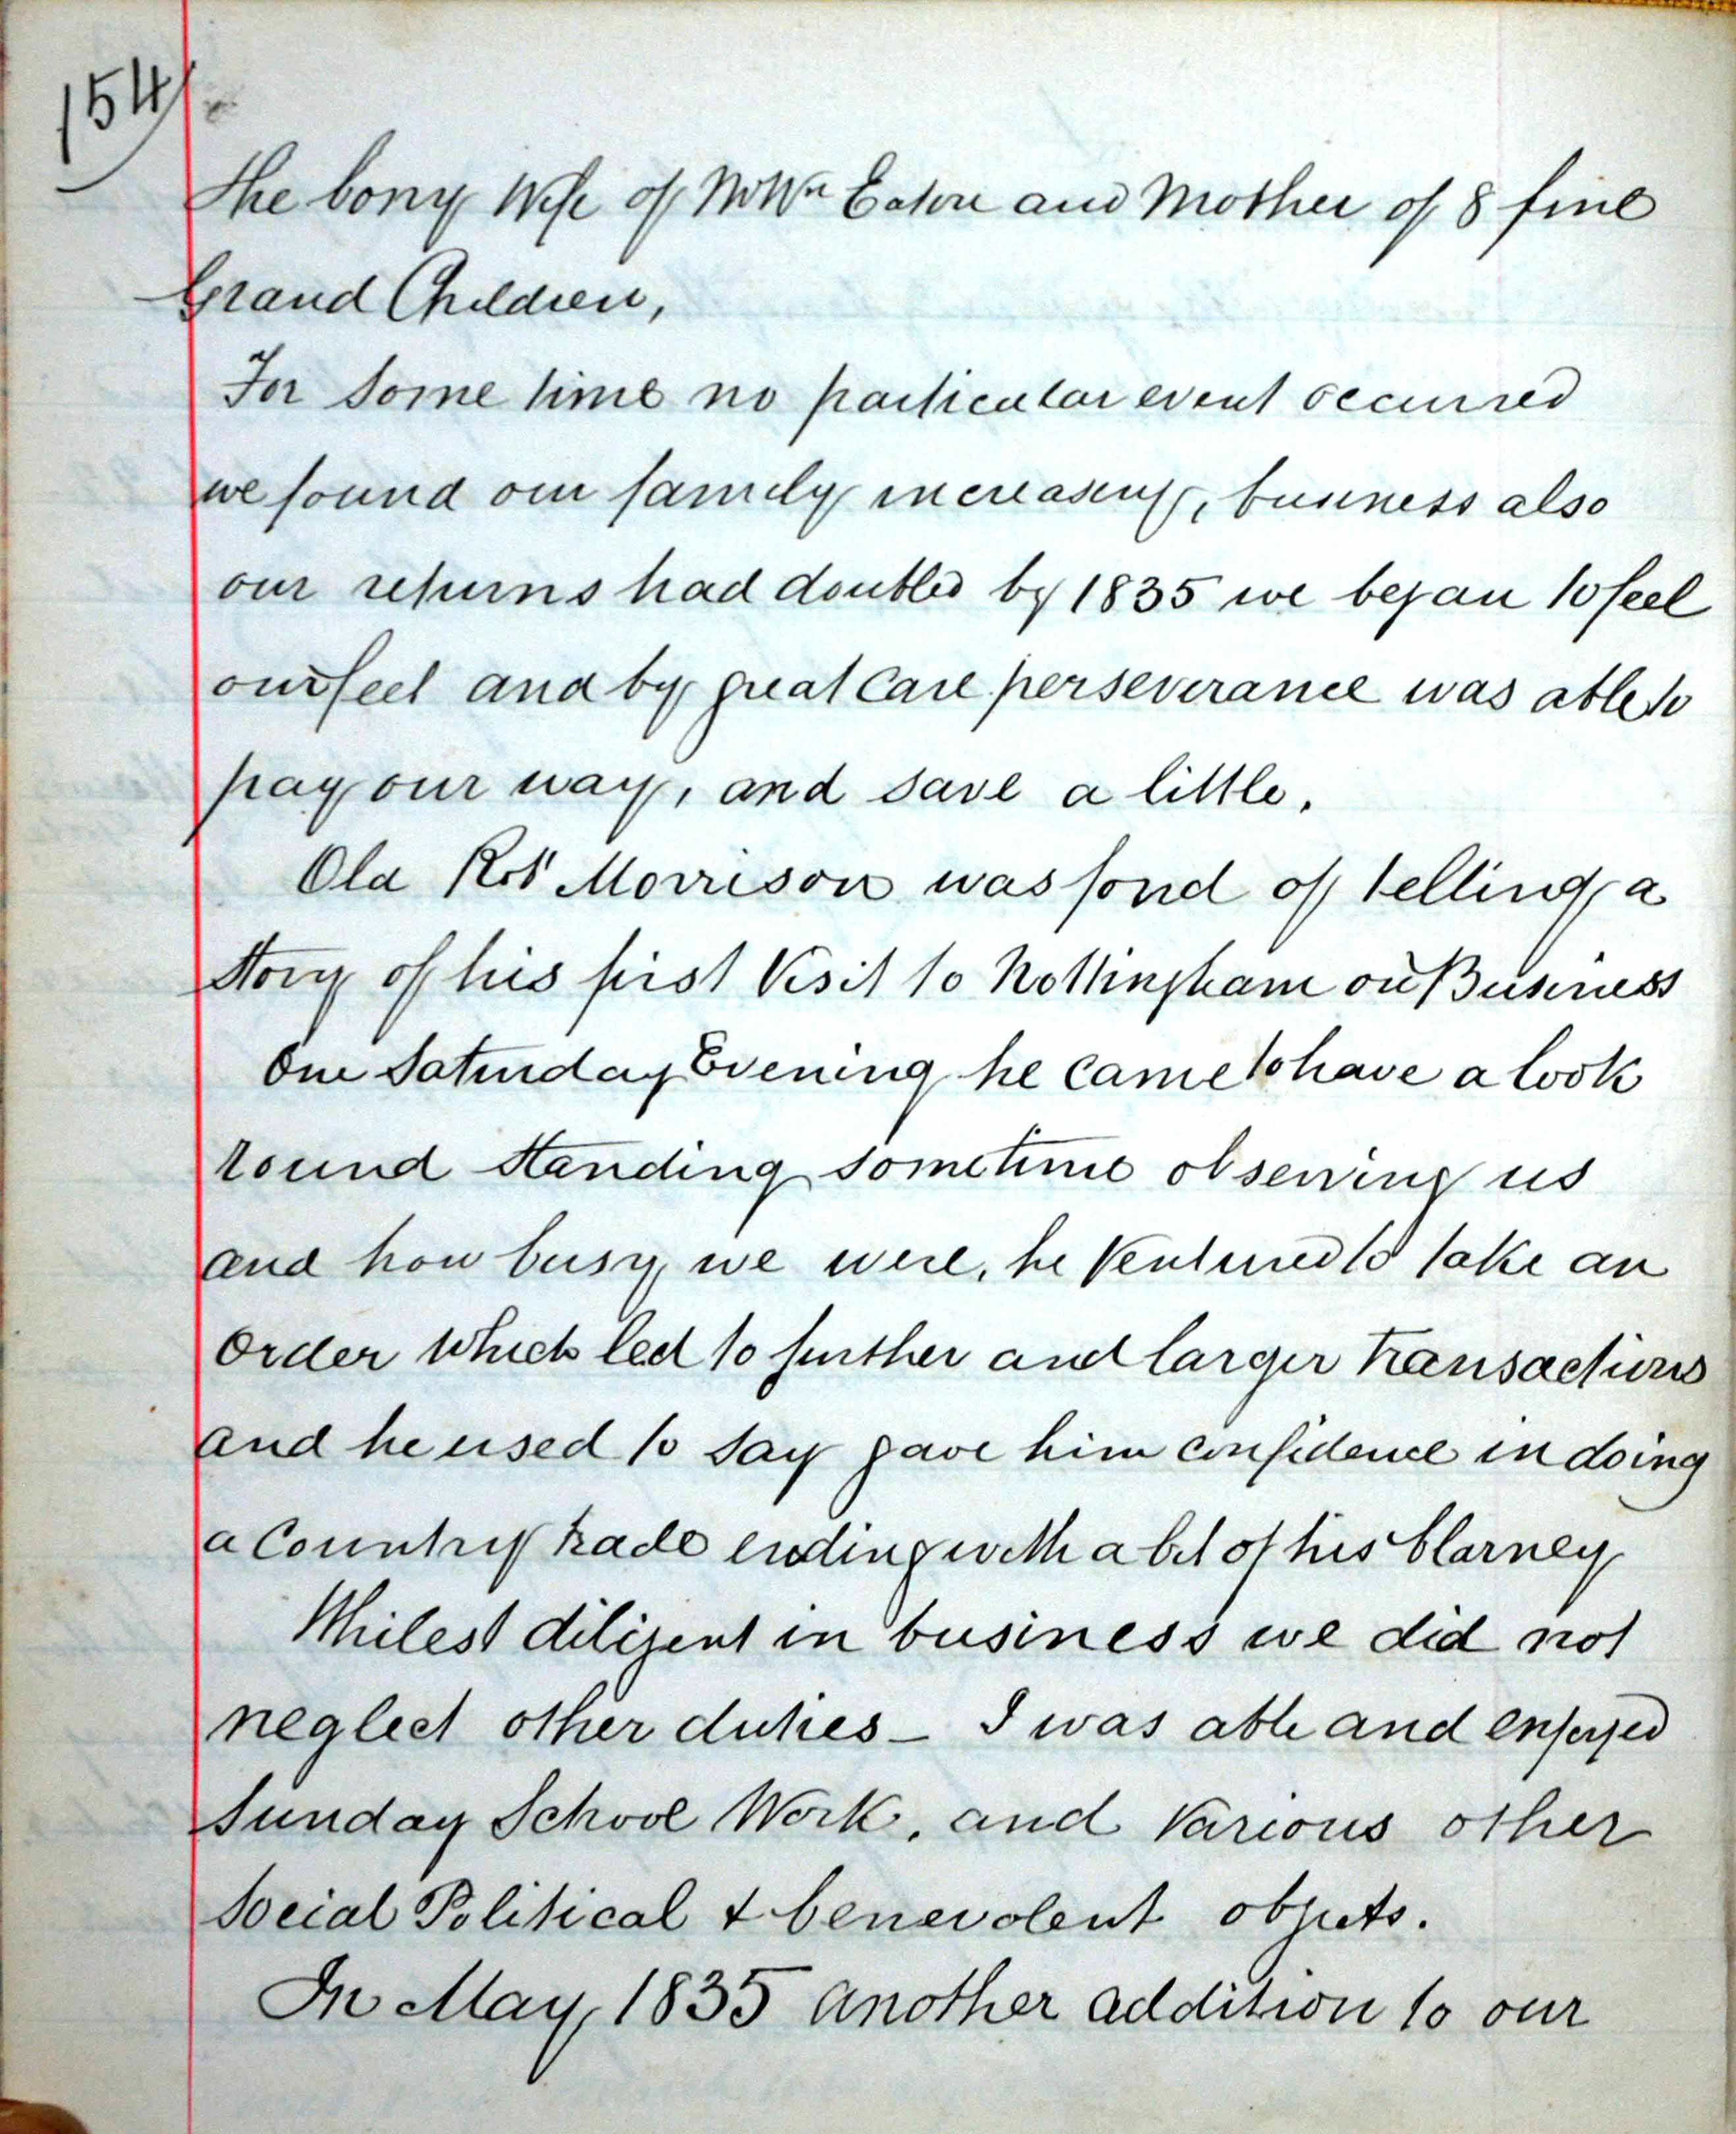 154
the bony Wife of Mr Wm Eaton and Mother of 8 fine
Grand Children,
For some time no particular event occurred
we found our family increasing, business also
our returns had doubled by 1835 we began to feel
our feet and by great care perseverance was able to
pay our way, and save a little.
Old Robt Morrison was fond of telling a
story of his first Visit to Nottingham on Business
One Saturday Evening he came to have a look
round standing sometime observing us
and how busy we were, he Ventured to take an
order which led to further and larger transactions
and he used to say gave him confidence in doing
a Country trade ending with a bit of his blarney
Whilest diligent in business we did not
neglect other duties - I was able and enjoyed
Sunday School Work, and Various other
Social Political & benevolent objects.
In May 1835 another addition to our